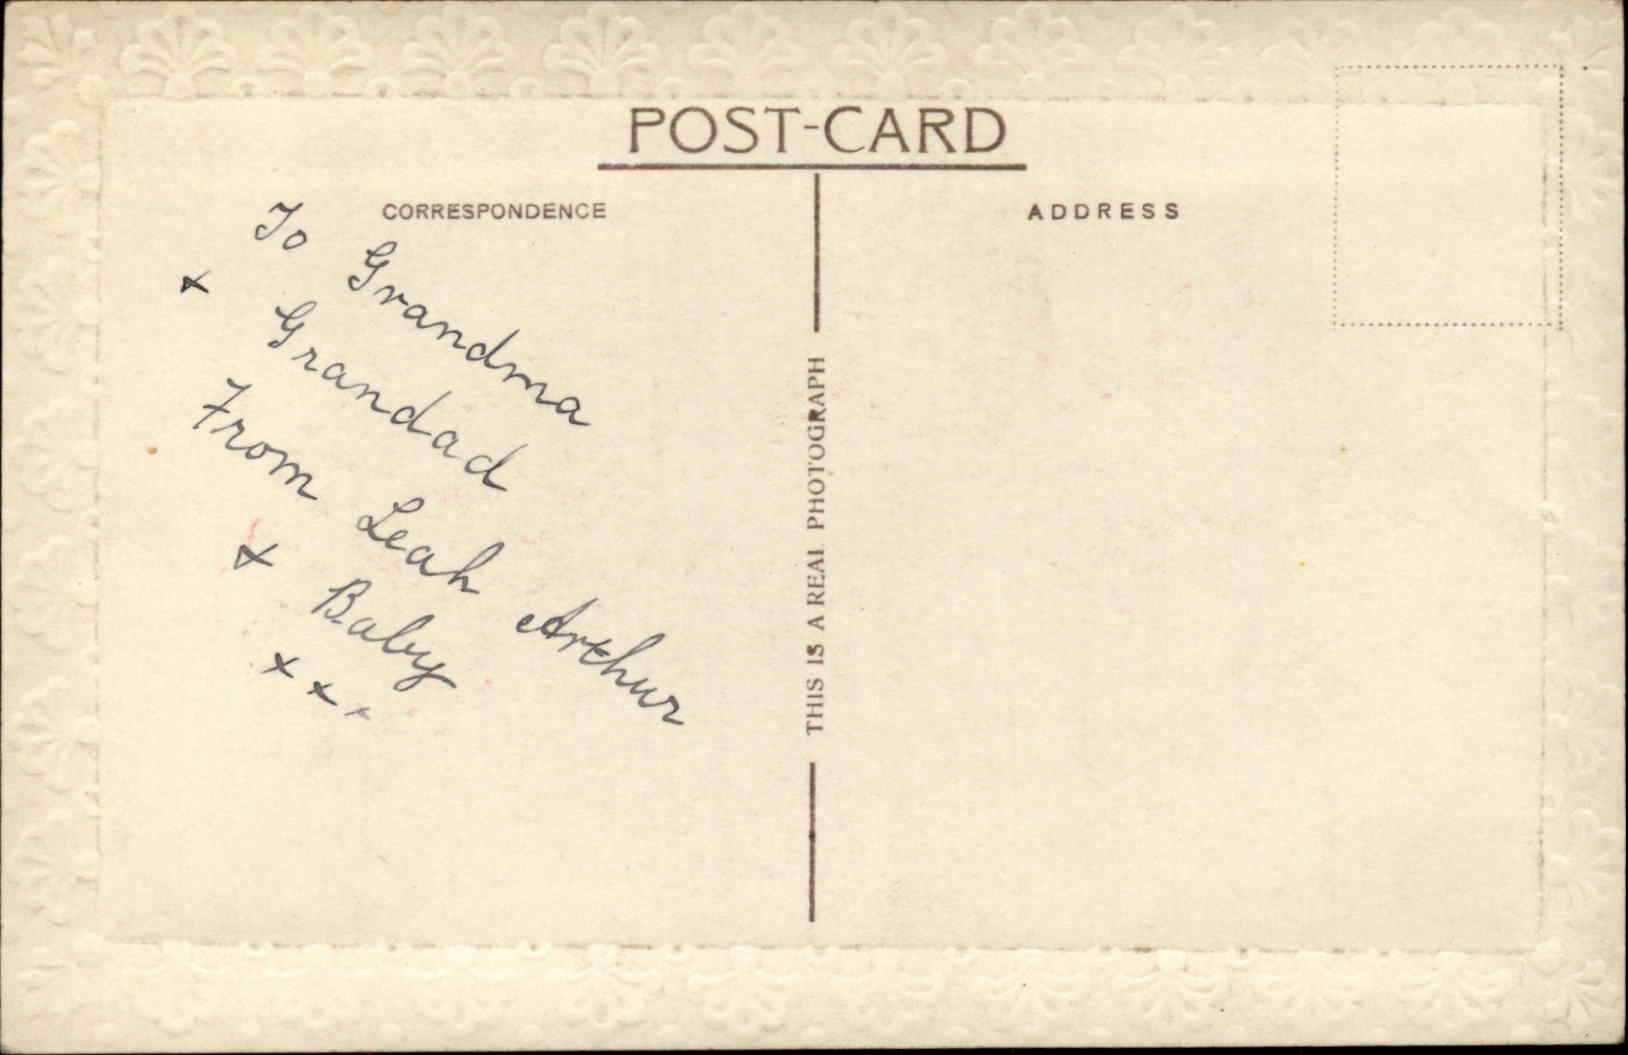 POST-CARD
CORRESPONDENCE
ADDRESS
To Grandma
+ Grandad
From Leah Arthur
+ Baby
x x x
THIS IS A REAL PHOTOGRAPH